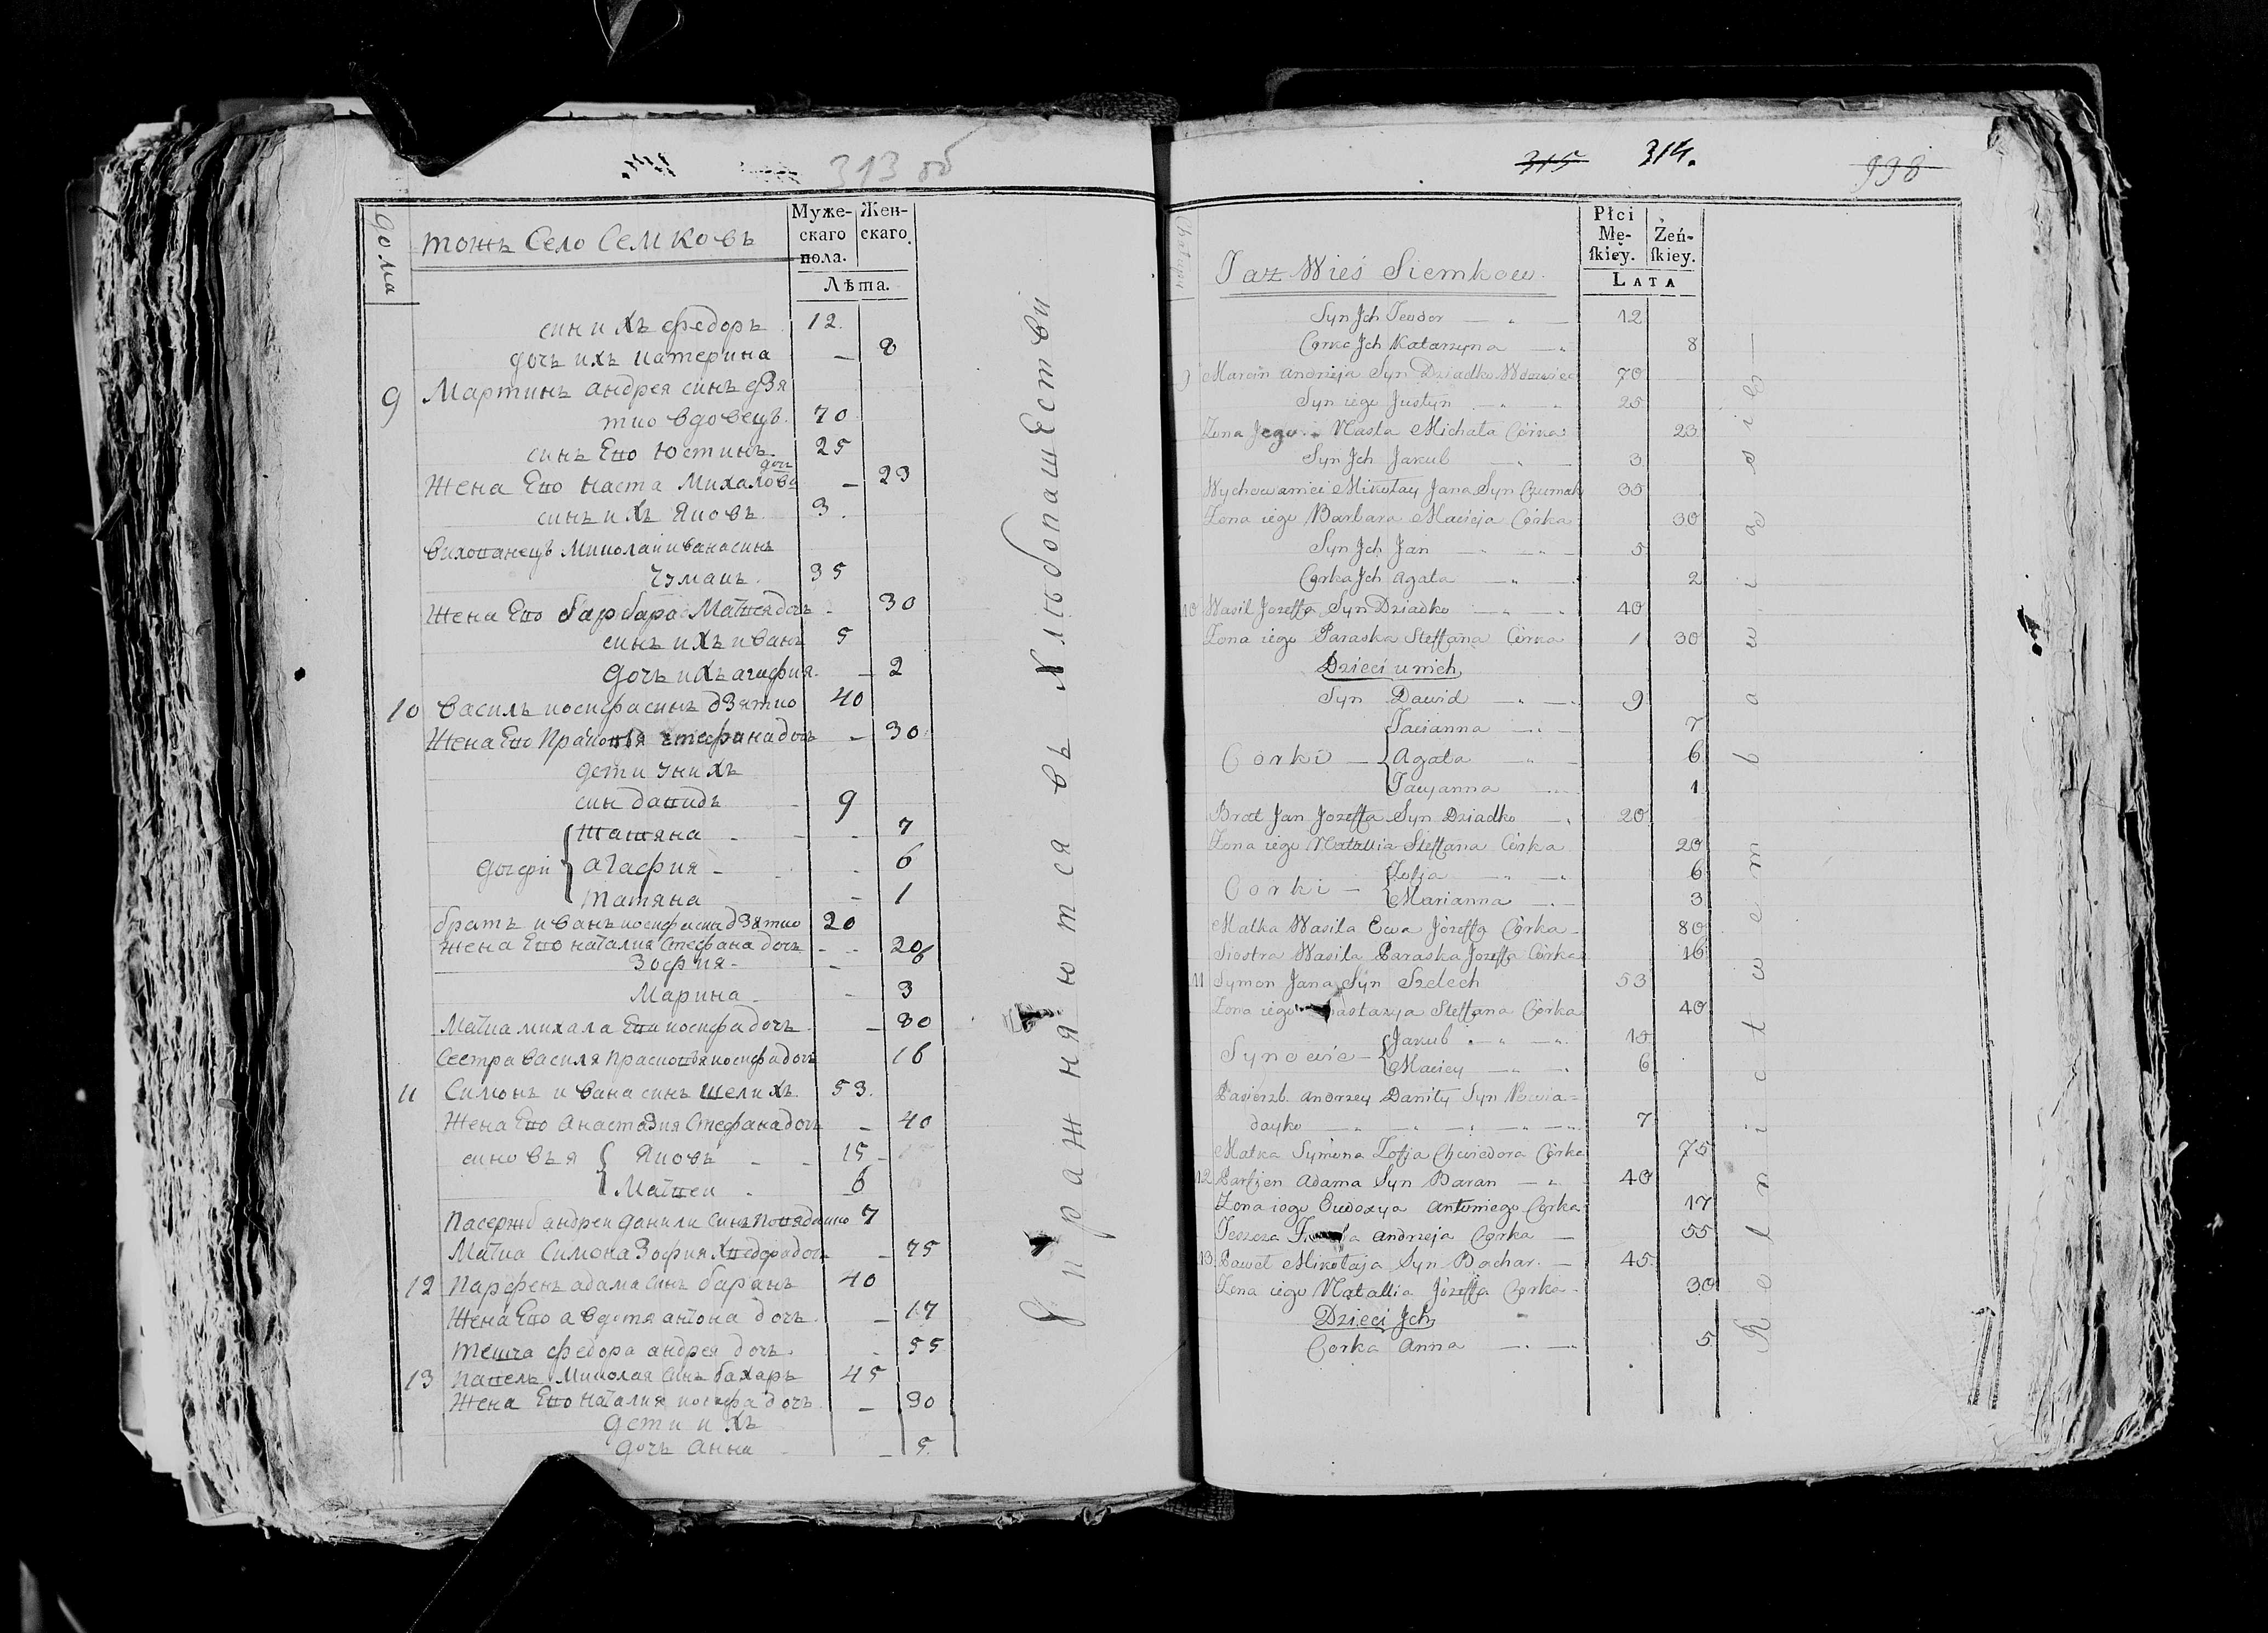 313 об
дома
тожъ Село Семковъ
Муже-
скаго
пола.
Жен-
скаго.
Лѣта.
син ихъ федоръ 12.
дочь ихъ катерина — 8
9 Мартинъ андрея синъ дзя
тко вдовецъ. 70
синъ Его Юстинъ 25
доч
Жена Его наста Михалова — 23
синъ ихъ Яковъ 3.
вихованецъ Миколай ивана синъ
Чумакъ. 35
Жена Его барбара Матвея дочь - 30
синъ ихъ иванъ 5
дочъ ихъ агафия. — 2
10 василъ иосифа синъ дзятко 40
Жена Его Прасковья стефана дочъ - 30
дети у них
син давидъ 9
Татяна - - 7
дочери { агафия - - 6
Татяна - 1
братъ иванъ иосифа синъ дзятко 20
Жена Его наталия Стефана дочъ - - 20
Зофия - - 6
Марина - - 3
Матка михала Ева иосифа дочъ. — 80
Сестра василя прасковья иосифа дочъ 16
11 Симонъ ивана синъ шелихъ. 53.
Жена Его анастазия Стефана дочъ — 40
синовья { Яковъ - - 15
Матвеи - 6
пасержб андреи данили синъ 7
Матка Симона Зофия Хведора дочъ — 75
12 Парфенъ адама синъ баранъ 40
Жена Его авдотя антона дочъ. — 17
Тешча федора андрея дочь. - 55
13 павелъ Миколая Синъ бахаръ 45
Жена Его наталия иосифа дочъ. — 30
дети ихъ
дочъ анна - — 5.
упражняются въ хлѣбопашЕстви
315 314. 998
Chałupa
Taż Wieś Siemkow.
Płci
Mę-
ſkiey.
Żeń-
ſkiey.
LATA
Syn Jch Teodor — „ — 12
Corka Jch Katarzyna — „ 8
9 Marcin andrzeja Syn Dziadko Wdowiec 70
Syn iego Justyn — „ „ 25
Zona Jego Nasta Michała Córka 23
Syn Jch Jakub — „ — 3
Wychowaniec Mikołay Jana Syn Czumak 35
Zona iego Barbara Macieja Córka 30
Syn Jch Jan — „ — „ 5
Corka Jch agata — „ — 2
10 Wasil Jozeffa Syn Dziadko — „ — 40
Zona iego Paraska Steffana Córka 1 30
Dzieci u nich
Syn Dawid — „ — 9
Tacianna — „ — 7
Corki — { Agata „ — 6
Tacyanna — 1
Brat Jan Jozeffa Syn Dziadko — „ 20
Zona iego Natallia Steffana Córka 20
Zofja — „ — „ 6
Corki — { Marianna — „ — 3
Matka Wasila Ewa Józeffa Córka - 80
Siostra Wasila Paraska Jozeffa Córka 16
11 Symon Jana Syn Szelech 53
Zona iego astazya Steffana Córka 40
Jakub „ — „ — „ 15
Synowie — { Maciey — „ — „ 6
Pasierzb. andrzey Daniły Syn Nowia=
dayko — „ — „ — „ — „ 7
Matka Symona Zofja Chwiedora Córka 75
12 Parfjen adama Syn Baran — „ 40
Zona iego Eudoxya antoniego Corka 17
Teszcza andrzeja Corka — 55
13 Paweł Mikołaja Syn Bachar. — 45.
Zona iego Natallia Józeffa Corka - 30
Dzieci Jch
Corka Anna — „ — 5
Rolnictwem bawią sie —